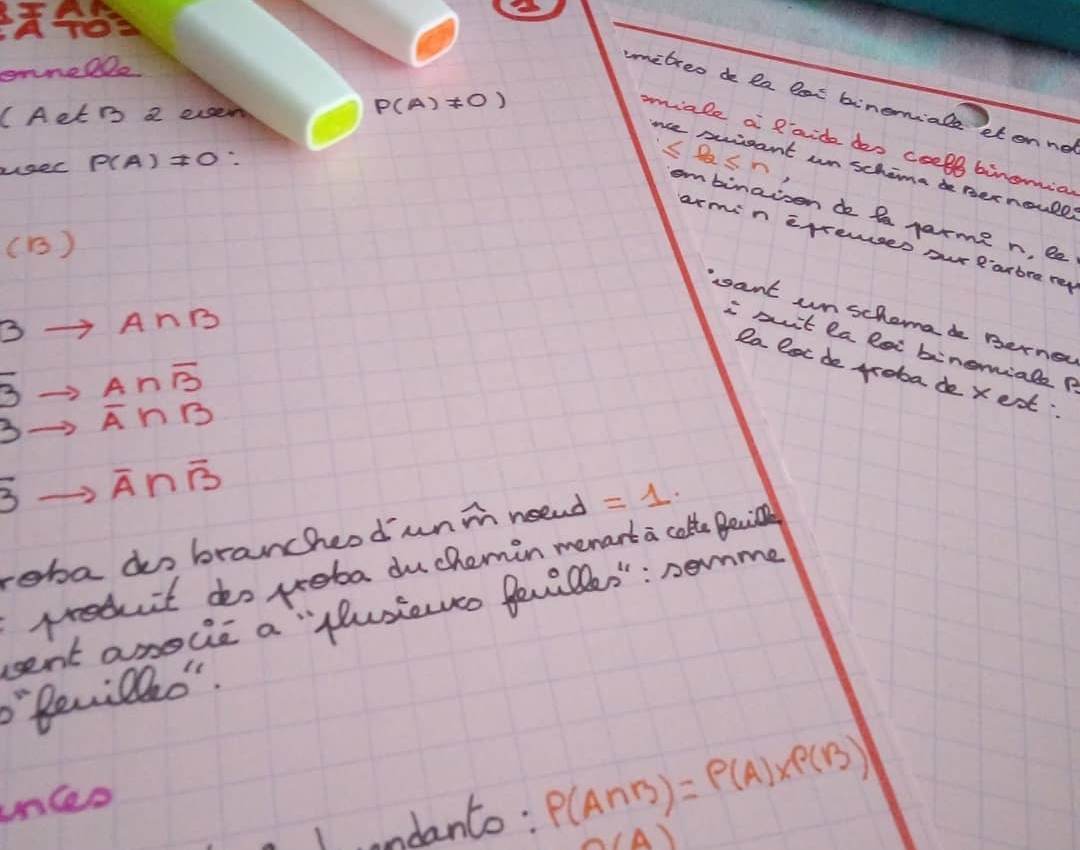 onnelle
(A et B 2 even P(A) ≠ 0)
avec P(A) ≠ 0 :
(B)
B → A∩B
B̅ → A∩B̅
B → A̅∩B
B̅ → A̅∩B̅
roba des branches d'un m̂ noeud = 1.
: produit des proba du chemin menant à cette feuille
ment associé a "plusieurs feuilles" : somme
s "feuilles".
ances
endants : P(A∩B) = P(A)×P(B)
P(A)
1
mètres de la loi binomiale et on not
omiale à l'aide des coeff binomia
nce suivant un schéma de Bernoulli
≤ k ≤ n,
ombinaison de k parmi n, le
armi n épreuves sur l'arbre rep
ivant un schema de Bernou
i suit la loi binomiale B
la loi de proba de X est :